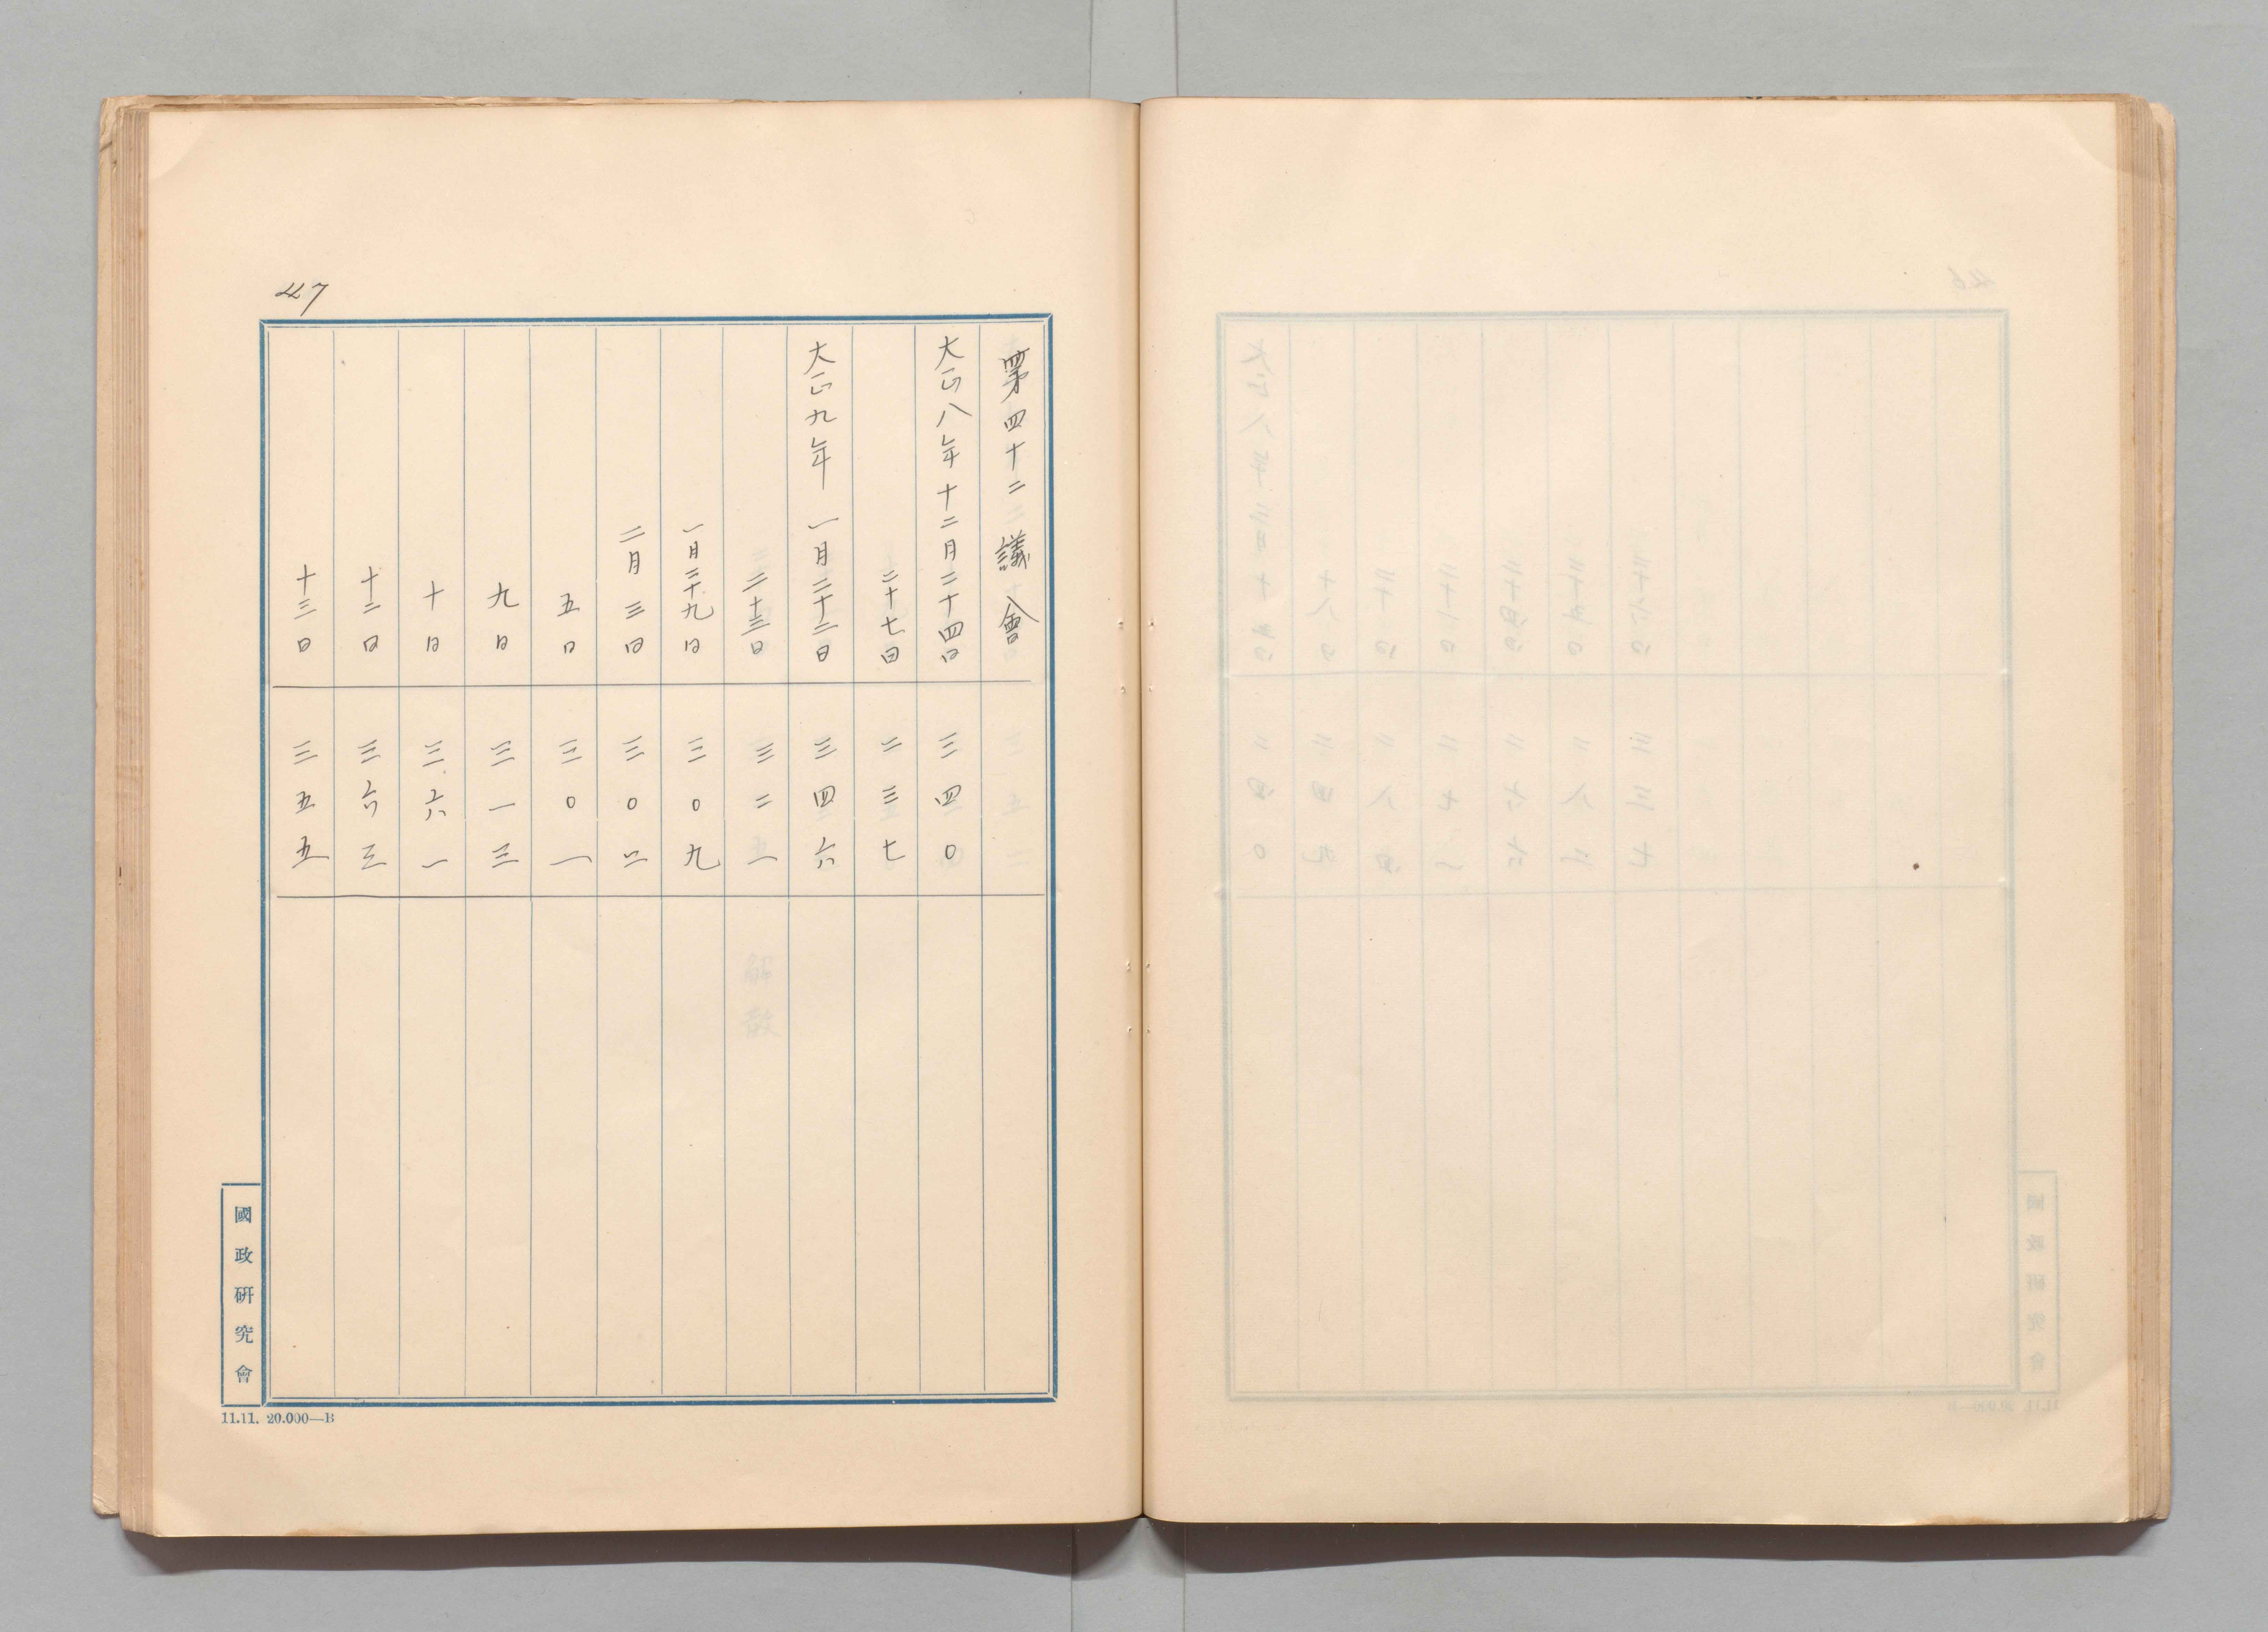 47
第四十二議會
大正八年十二月二十四日 三四〇
二十七日 二三七
大正九年一月二十二日 三四六
二十三日 三二一
一月二十九日 三〇九
二月三日 三〇二
五日 三〇一
九日 三一三
十日 三六一
十二日 三六三
十三日 三五五
國政研究會
11.11. 20.000—B